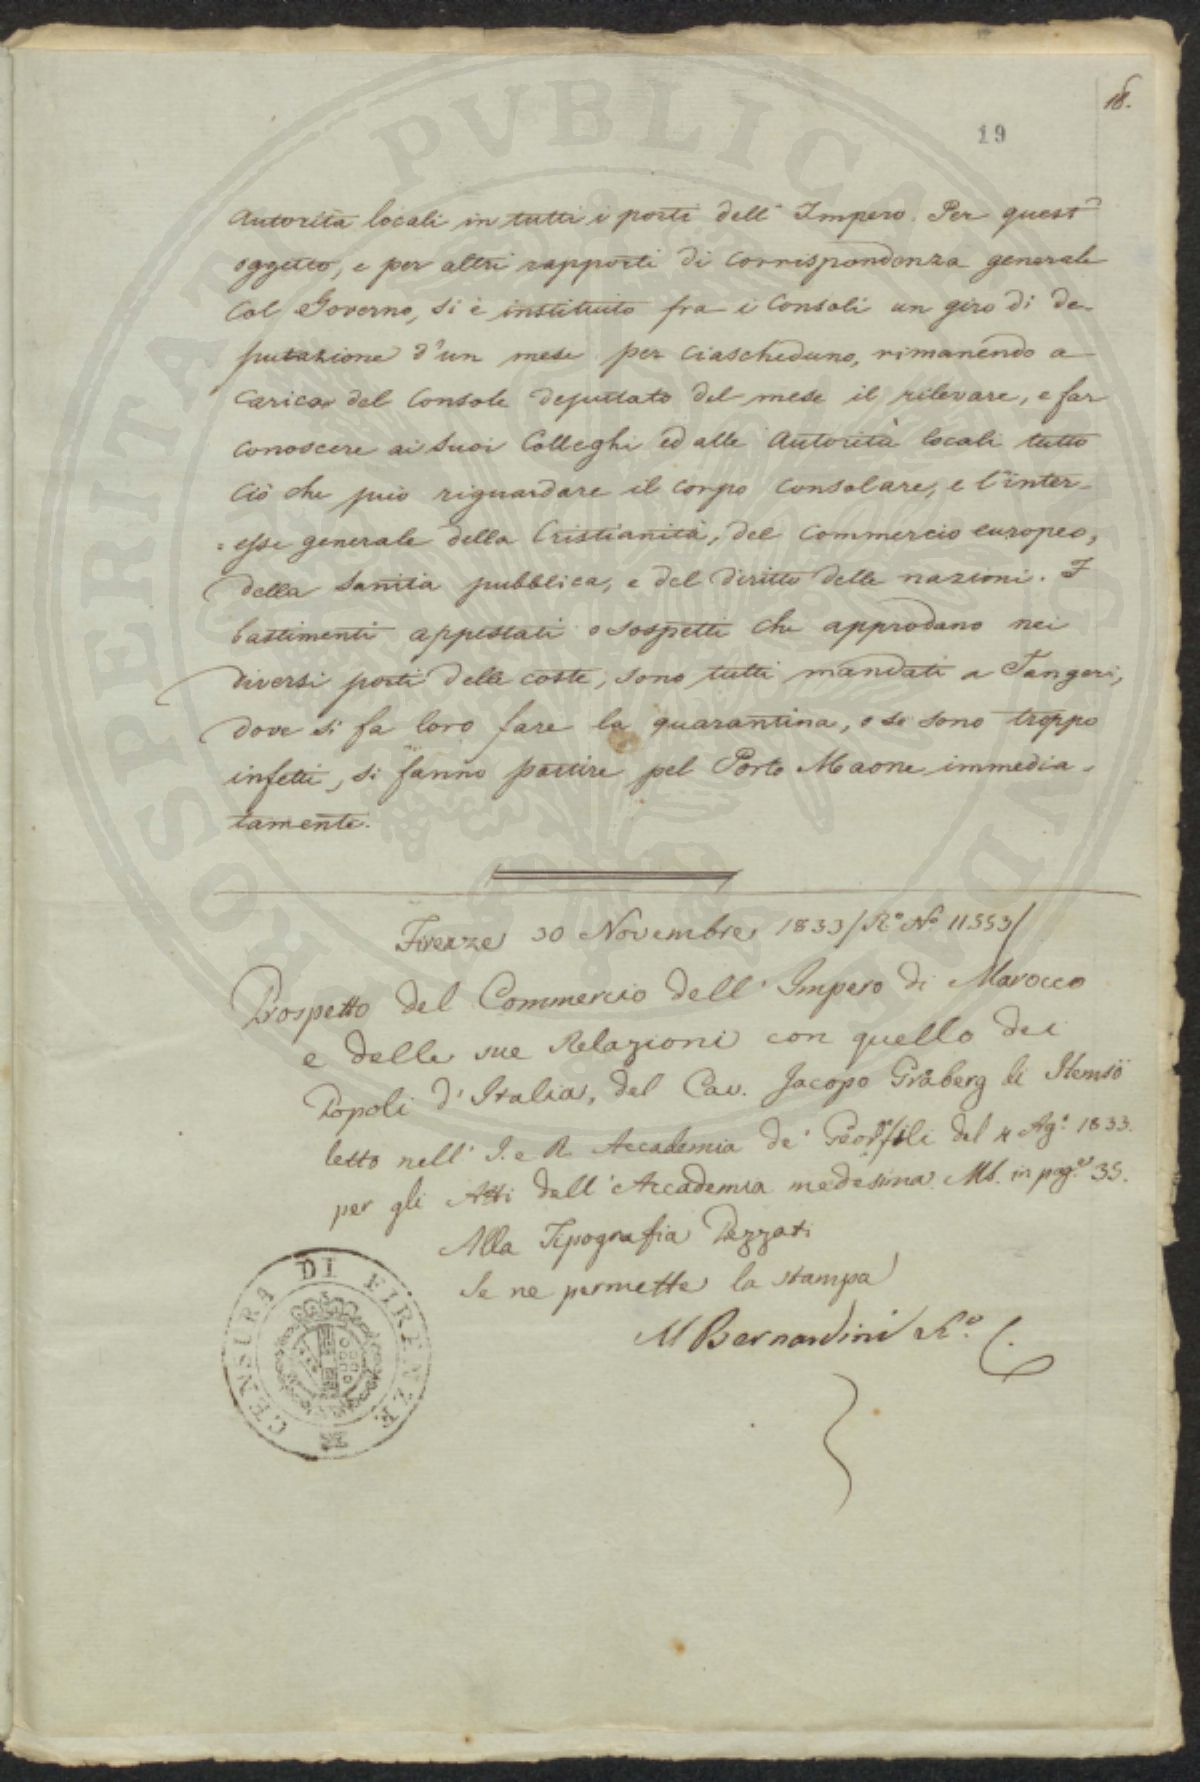 18.
19
autorità locali in tutti i porti dell' Impero. Per quest'
oggetto, e per altri rapporti di corrispondenza generale
col Governo, si è instituito fra i Consoli un giro di de-
putazione d'un mese per ciascheduno, rimanendo a
carico del Console deputato del mese il rilevare, e far
conoscere ai suoi Colleghi ed alle Autorità locali tutto
ciò che può riguardare il corpo consolare, e l'inter-
=esse generale della Cristianità, del commercio europeo,
della sanità pubblica, e del diritto delle nazioni. I
bastimenti appestati o sospetti che approdano nei
diversi porti delle coste, sono tutti mandati a Tangeri,
dove si fa loro fare la quarantina, o se sono troppo
infetti, si fanno partire pel Porto Maone immedia-
tamente.
Firenze 30 Novembre 1833 / R.º Nº 11553/
Prospetto del Commercio dell' Impero di Marocco
e delle sue Relazioni con quello dei
Popoli d'Italia, del Cav. Jacopo Gråberg di Hemsö
letto nell' I. e R. Accademia de' Georgofili del 4 Agº 1833.
per gli Atti dell' Accademia medesima. Ms. in pagº 35.
Alla Tipografia Pezzati
Se ne permette la stampa
M Bernardini R.º C.
CENSURA DI FIRENZE
HOSPERITATIS PVBLICAE